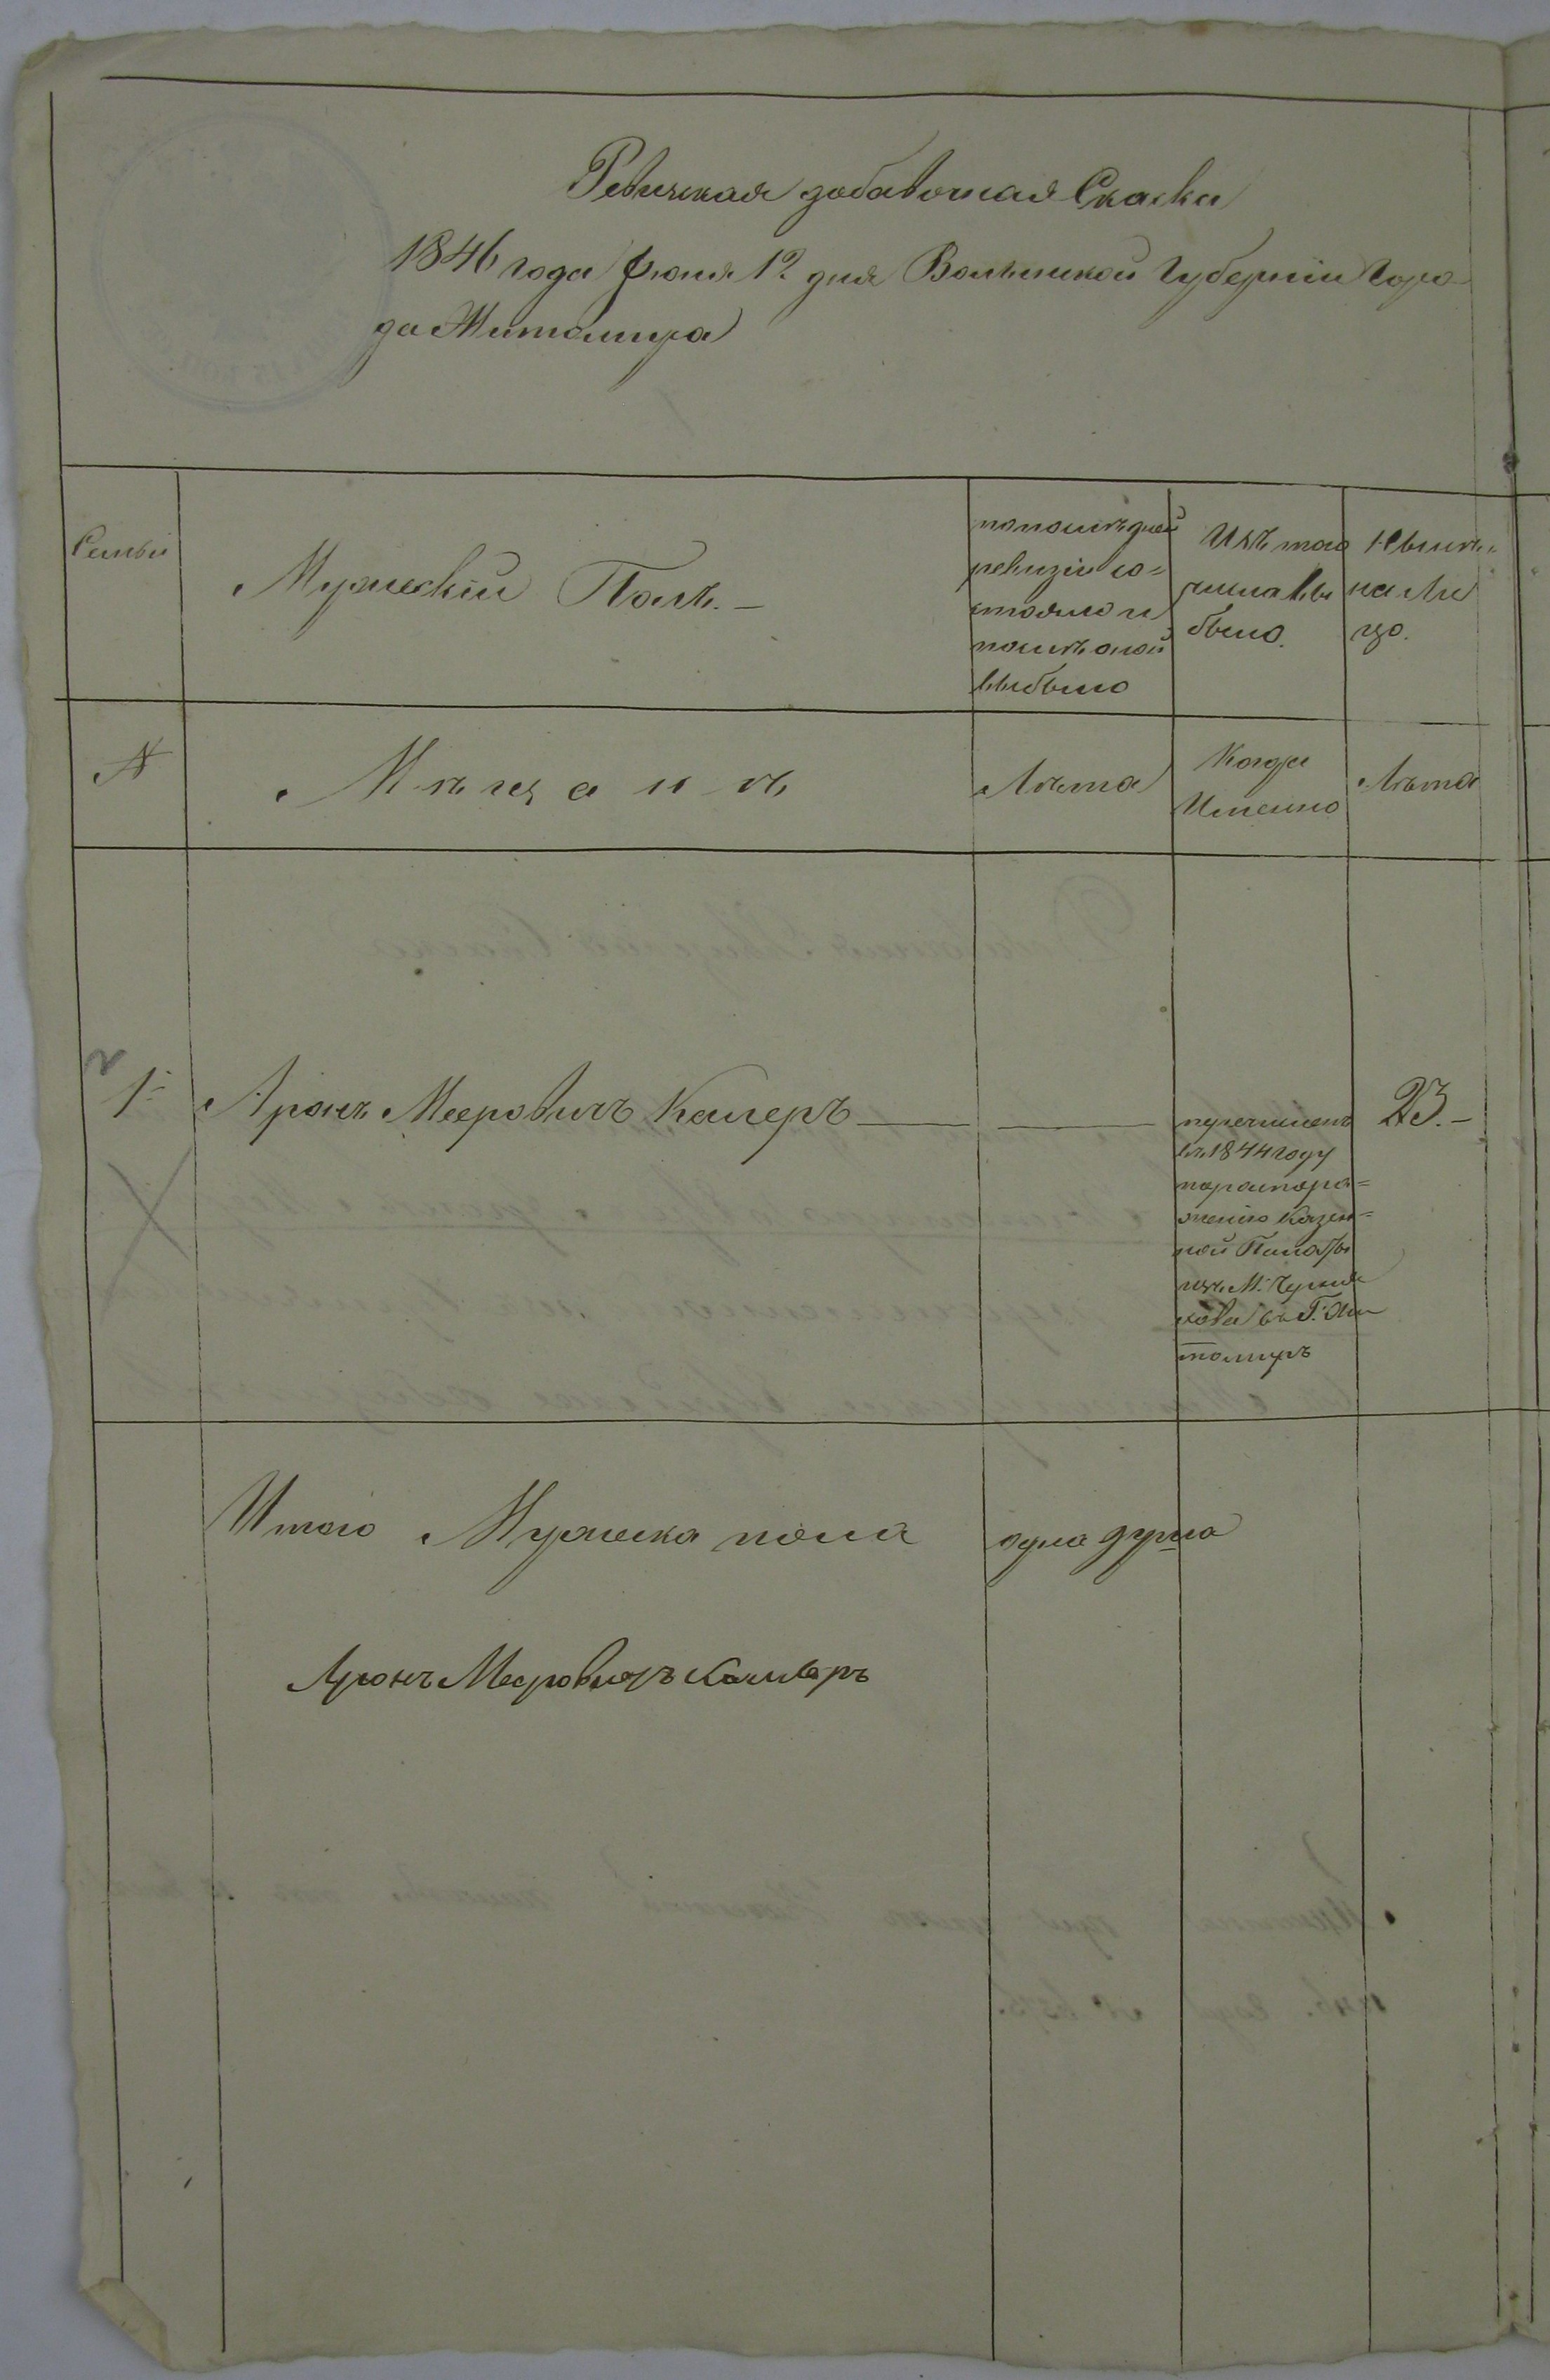 Ревизская добавочная Сказка
1846 года Июня 12 дня Волынской Губернии Горо
да Житомира
Семьи
Мужеский Полъ. —
по послѣдней
ревизіи со=
стояло и
послѣ оной
выбыло
Изъ того
числа вы
было.
Нынѣ
на Ли
цо.
№
Мѣщанъ
Лѣта
Когда
Именно
Лѣта
1
Аронъ Мееровичъ Калеръ
перечисленъ
въ 1844 году
по распоря=
женію Казен=
ной Палаты
изъ М. Черня
хова въ Г. Жи
томиръ
23. —
Итого Мужеска пола одна душа
Аронъ Мееровичъ Калеръ